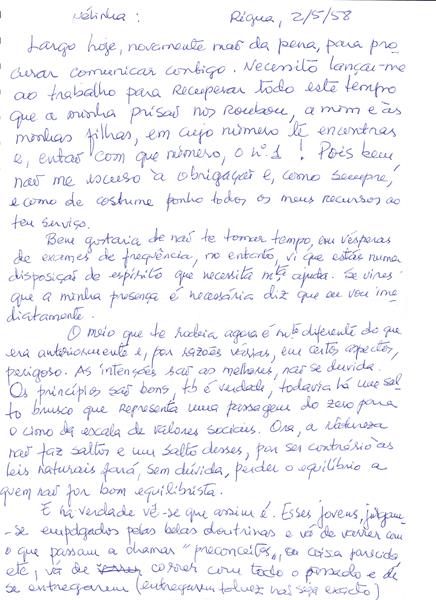 Nélinha: Régua, 2/5/58
Largo hoje, novamente mão da pena, para pro-
curar comunicar contigo. Necessito lançar-me
ao trabalho para recuperar todo este tempo
que a minha prisão nos roubou, a mim e às
minhas filhas, em cujo número te encontras
e, então com que número, o nº 1! Pois bem
não me escuso à obrigação e, como sempre,
e como de costume ponho todos os meus recursos ao
teu serviço.
Bem gostaria de não te tomar tempo, em vésperas
de exames de frequência, no entanto, vi que estás numa
disposição de espírito que necessita mtª ajuda. Se vires
que a minha presença é necessária diz que eu vou ime-
diatamente.
O meio que te rodeia agora é mtº diferente do que
era anteriormente e, por razões várias, em certos aspectos,
perigoso. As intenções são as melhores, não se duvida.
Os princípios são bons, tb é verdade, todavia há um sal-
to brusco que representa uma passagem do zero para
o cimo da escala de valores sociais. Ora, a natureza
não faz saltos e um salto desses, por ser contrário às
leis naturais fará, sem dúvida, perder o equilíbrio a
quem não for bom equilibrista.
E há verdade vê-se que assim é. Esses jovens, julgam-
-se empolgados pelas belas doutrinas e vá de varrer com
o que passam a chamar "preconceitos", ou coisa parecida
etc, vá de correr com todo o passado e de
se entregarem (entregarem talvez não seja exacto)